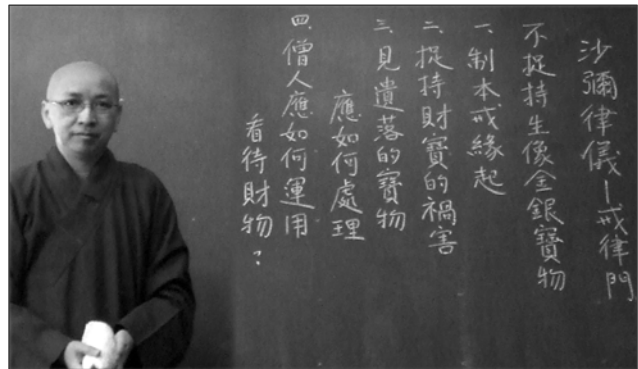 沙彌律儀－戒律門
不捉持生像金銀寶物
一、制本戒緣起
二、捉持財寶的禍害
三、見遺落的寶物
應如何處理
四、僧人應如何運用
看待財物？